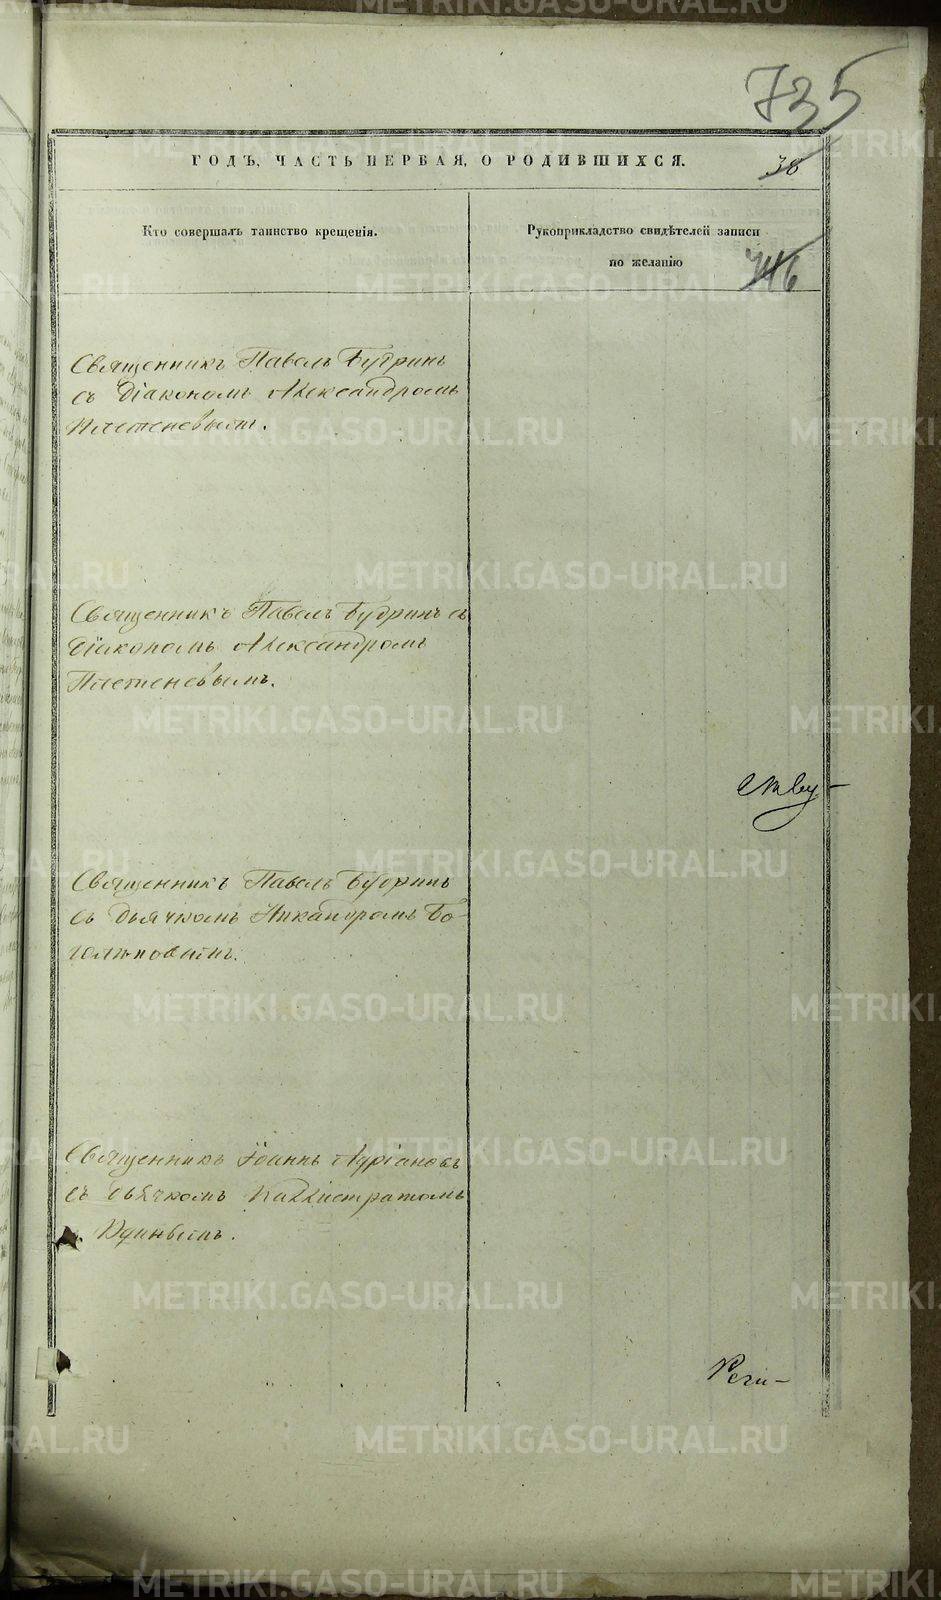 735
ГОДЪ, ЧАСТЬ ПЕРВАЯ, О РОДИВШИХСЯ.
38
Кто совершалъ таинство крещенія.
Рукоприкладство свидѣтелей записи
по желанію
746
Священникъ Павелъ Будринъ
съ Діакономъ Александромъ
Плетеневымъ.
Священникъ Павелъ Будринъ съ
Діакономъ Александромъ
Плетеневымъ.
ству-
Священникъ Павелъ Будринъ
съ Дьячкомъ Никандромъ Бо-
голѣповымъ.
Священникъ Іоаннъ Адріановъ
съ Дьячкомъ Каллистратомъ
Юдинымъ.
Реги-
METRIKI.GASO-URAL.RU